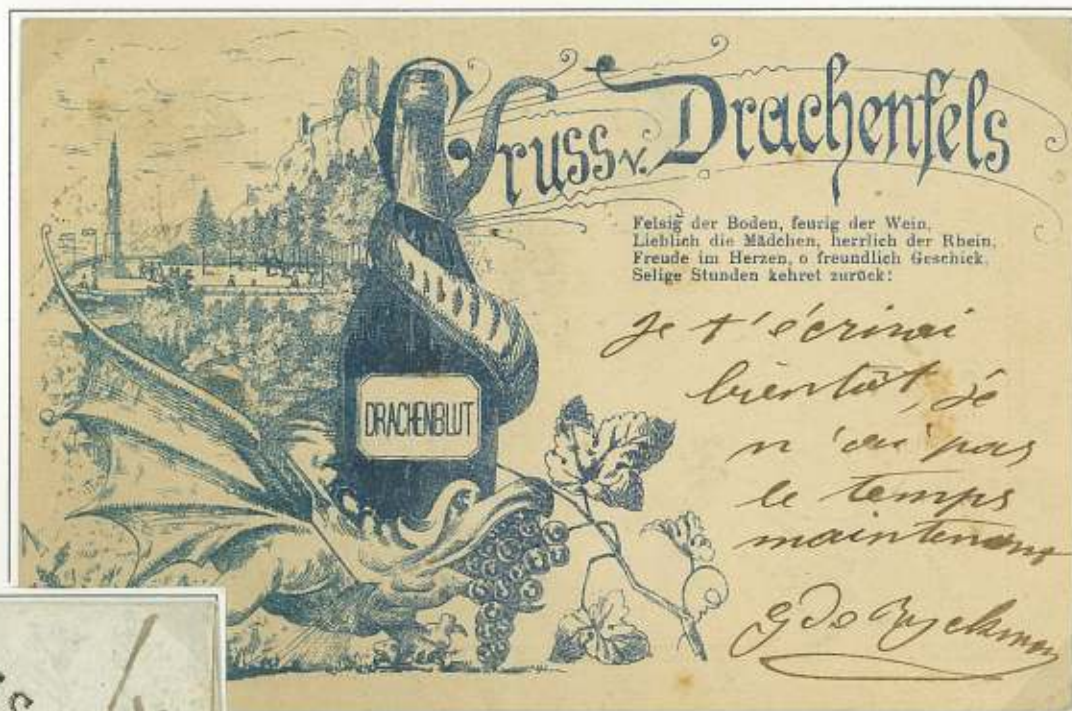 Gruss v. Drachenfels
Felsig der Boden, feurig der Wein,
Lieblich die Mädchen, herrlich der Rhein,
Freude im Herzen, o freundlich Geschick,
Selige Stunden kehret zurück!
DRACHENBLUT
Je t'écrirai
bientôt, je
n'ai pas
le temps
maintenant
G De Ryckman